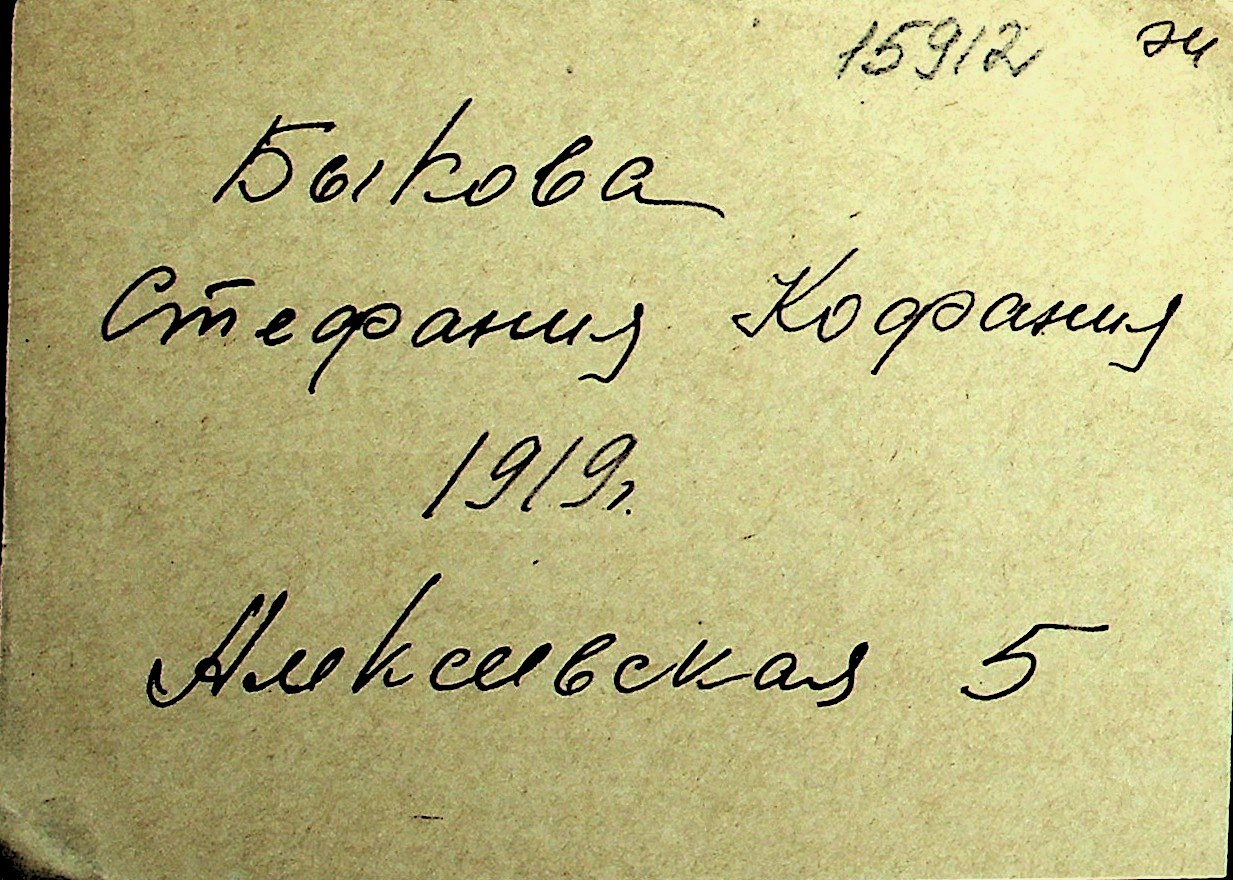 15912 эи
Быкова
Стефания Кофания
1919г.
Алексеевская 5